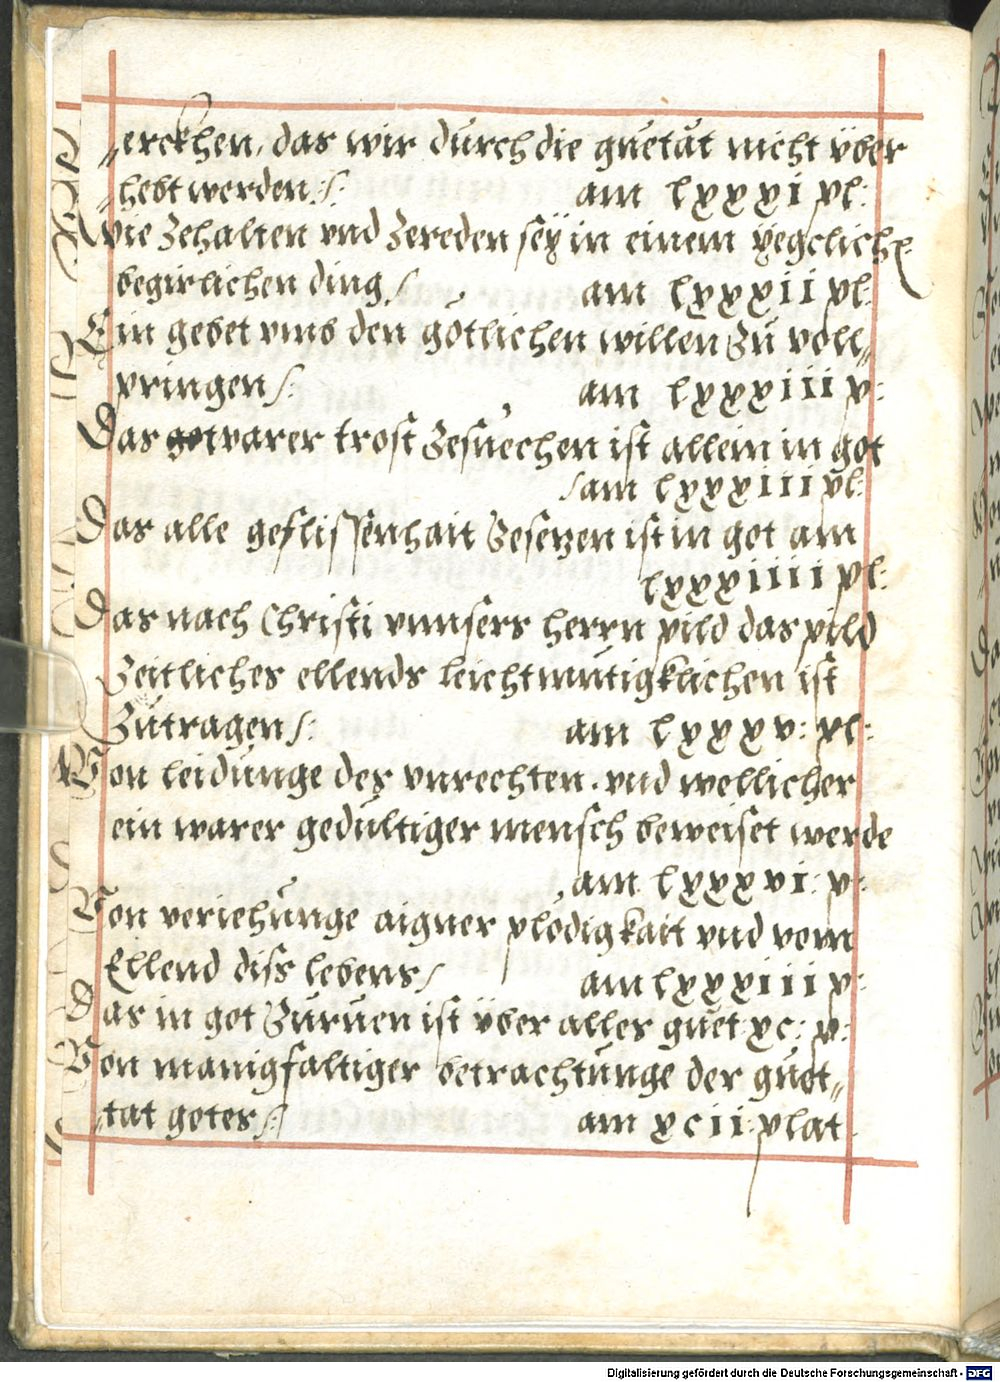 „erckhen, das wir durch die guetat nicht vber
„hebt werden :/: am lxxxxi pl:
Wie zehalten vnd zereden seÿ in einem yegclichē
begirlichen ding :/ am lxxxxii pl:
Ein gebet vmb den götlichen willen zů voll„
pringen :/: am lxxxxiii p:
Das warer trost zesuechen ist allein in got
am lxxxxiii pl:
Das alle geflissenhait zesetzen ist in got am
lxxxxiiii pl:
Das nach Christi vnnsers herrn pild das pild
zeitliches ellends leichtmütigklichen ist
zůtragen :/: am lxxxxv: pl:
Von leidunge der vnrechten. vnd wellicher
ein warer gedultiger mensch beweiset werde
am lxxxxvi: p:
Von veriehunge aigner plödigkait vnd vom
Ellend diss lebens :/ am lxxxxiii p:
Das in got zuruen ist vber alles guet: xc: p:
Von manigfaltiger betrachtunge der guet„
„tat gotes :/: am xcii: plat
Digitalisierung gefördert durch die Deutsche Forschungsgemeinschaft - DFG